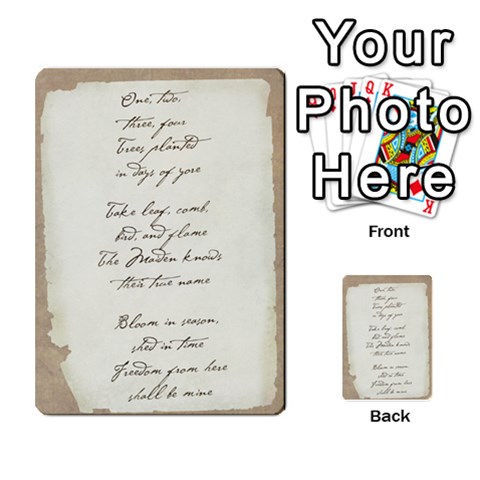 One, two,
three, four
Trees planted
in days of yore
Take leaf, comb,
bird, and flame
The Maiden knows
their true name
Bloom in season,
shed in time
Freedom from here
shall be mine
Your
Photo
Here
J
Q
K
K
Front
One, two,
three, four
Trees planted
in days of yore
Take leaf, comb,
bird, and flame
The Maiden knows
their true name
Bloom in season,
shed in time
Freedom from here
shall be mine
Back